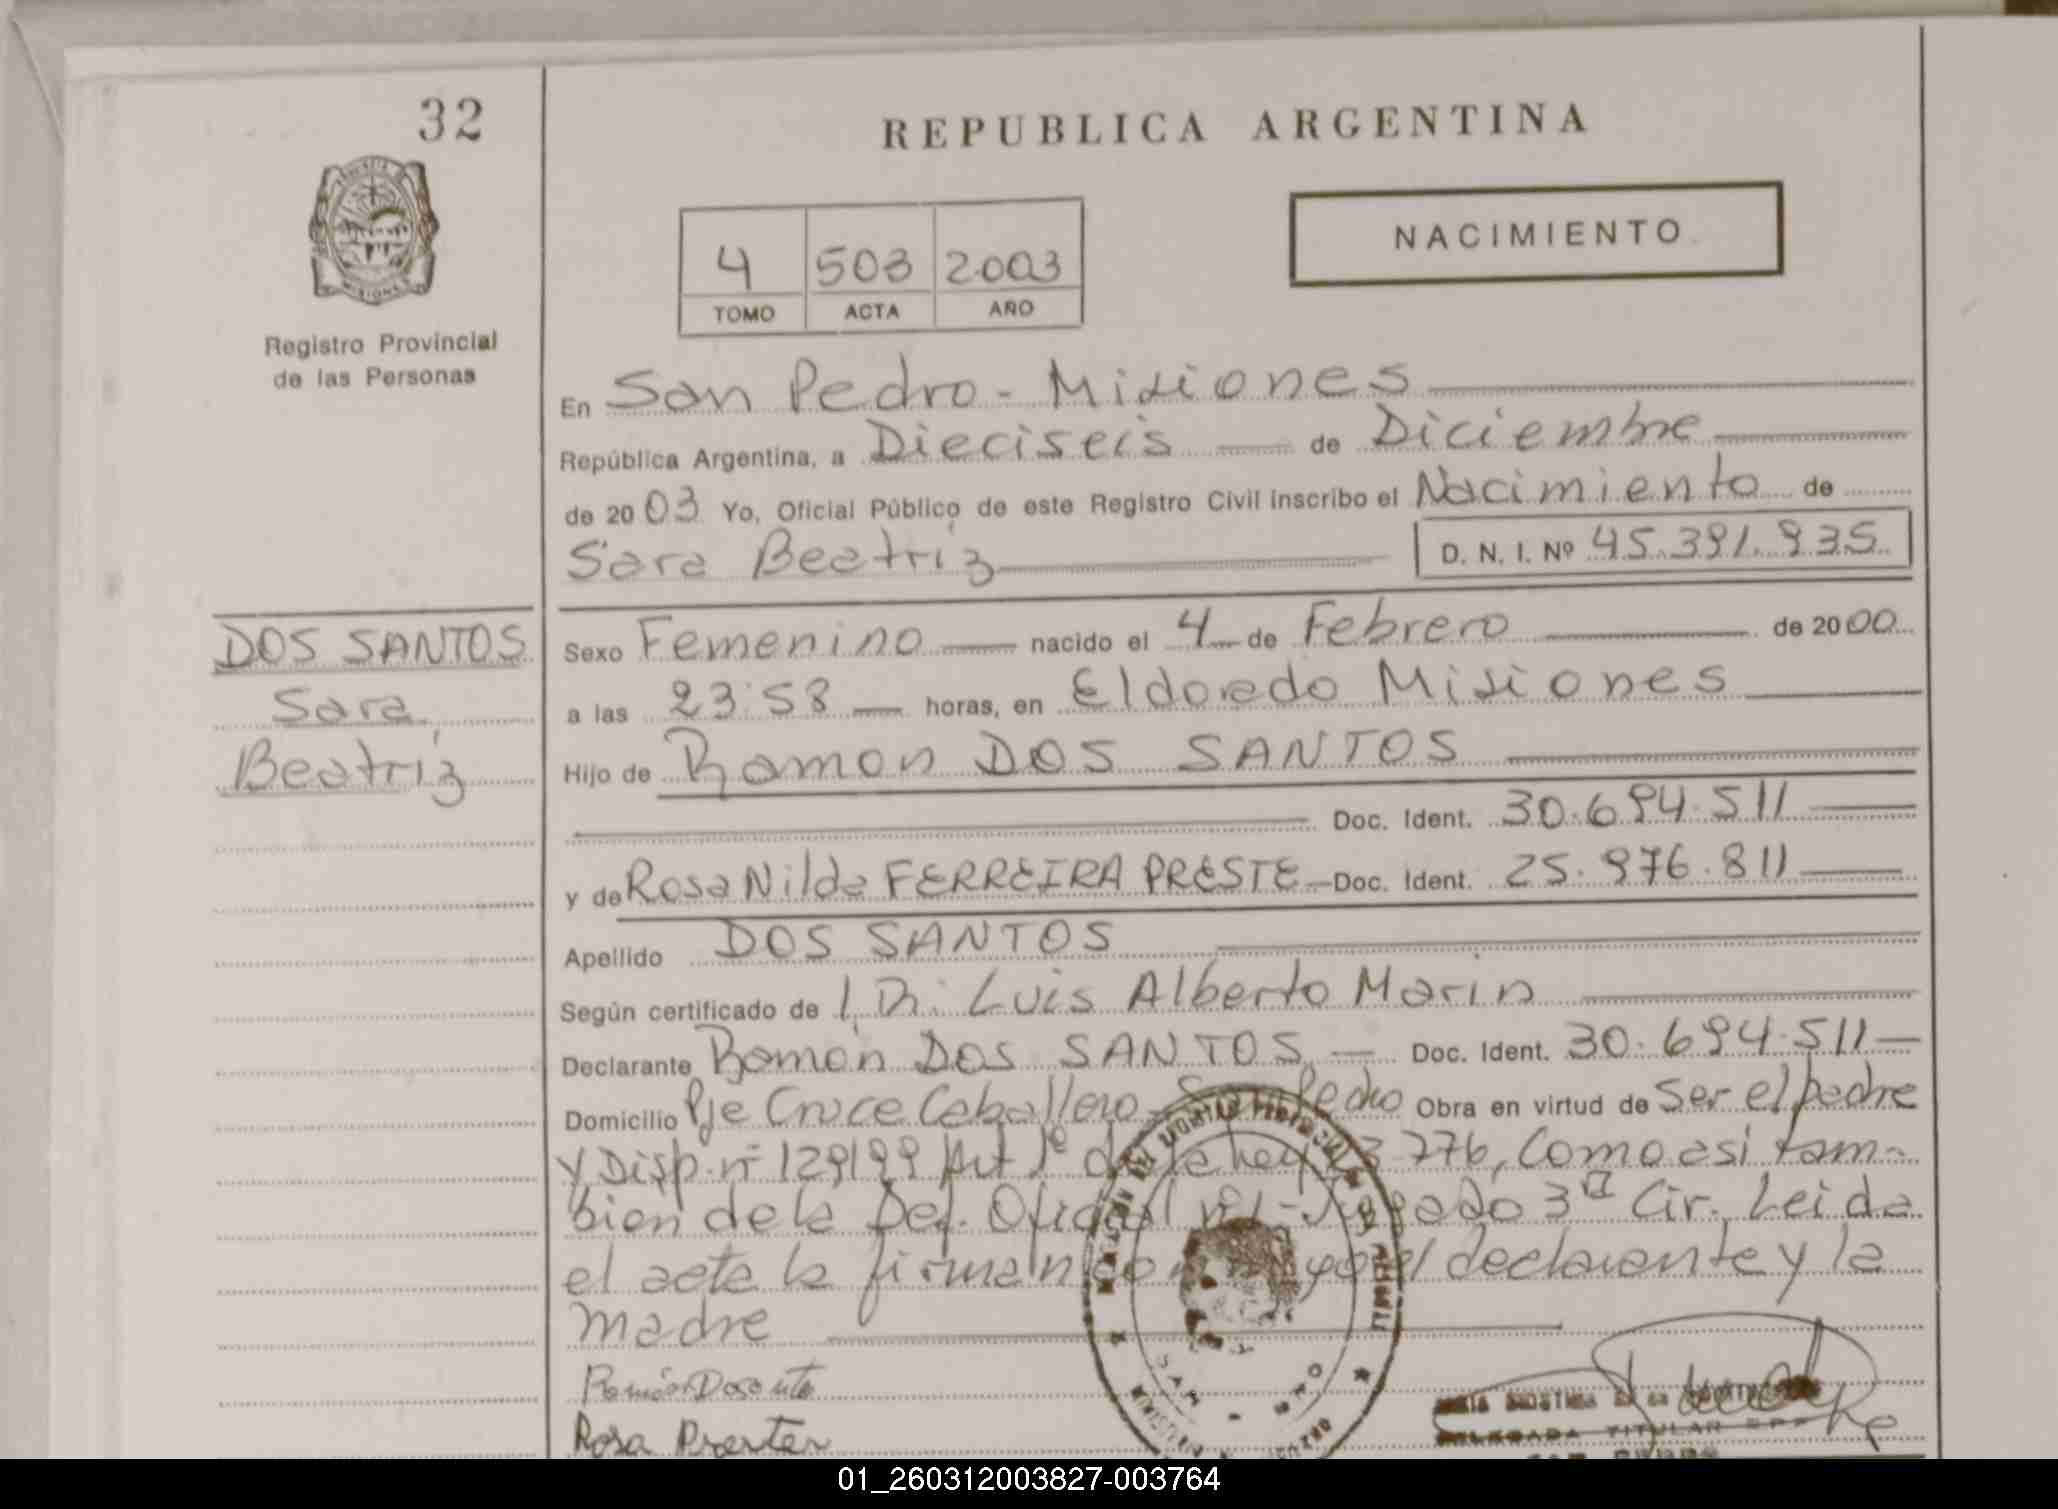 32
REPUBLICA ARGENTINA
NACIMIENTO
4 503 2003
TOMO ACTA AÑO
MISIONES
Registro Provincial
de las Personas
En San Pedro - Misiones
República Argentina, a Dieciseis de Diciembre
de 2003 Yo, Oficial Público de este Registro Civil inscribo el Nacimiento de
Sara Beatriz D. N. I. Nº 45.391.935
DOS SANTOS
Sara
Beatriz
Sexo Femenino nacido el 4 de Febrero de 2000
a las 23:58 horas, en Eldorado Misiones
Hijo de Ramon DOS SANTOS
Doc. Ident. 30.694.511
y de Rosa Nilda FERREIRA PRESTE Doc. Ident. 25.976.811
Apellido DOS SANTOS
Según certificado de Luis Alberto Marin
Declarante Ramón DOS SANTOS Doc. Ident. 30.694.511
Domicilio Pje Cruce Caballero - San Pedro Obra en virtud de Ser el padre
y Disp. nº 129/99 Art 1º de la Ley 776, Como asi tam-
bien de la Def. Oficial Nº1 - Juzgado 3ra Cir. Leida
el acta la firman con migo el declarante y la
madre
Rosa Prester
DELEGADA TITULAR RPP
01_260312003827-003764